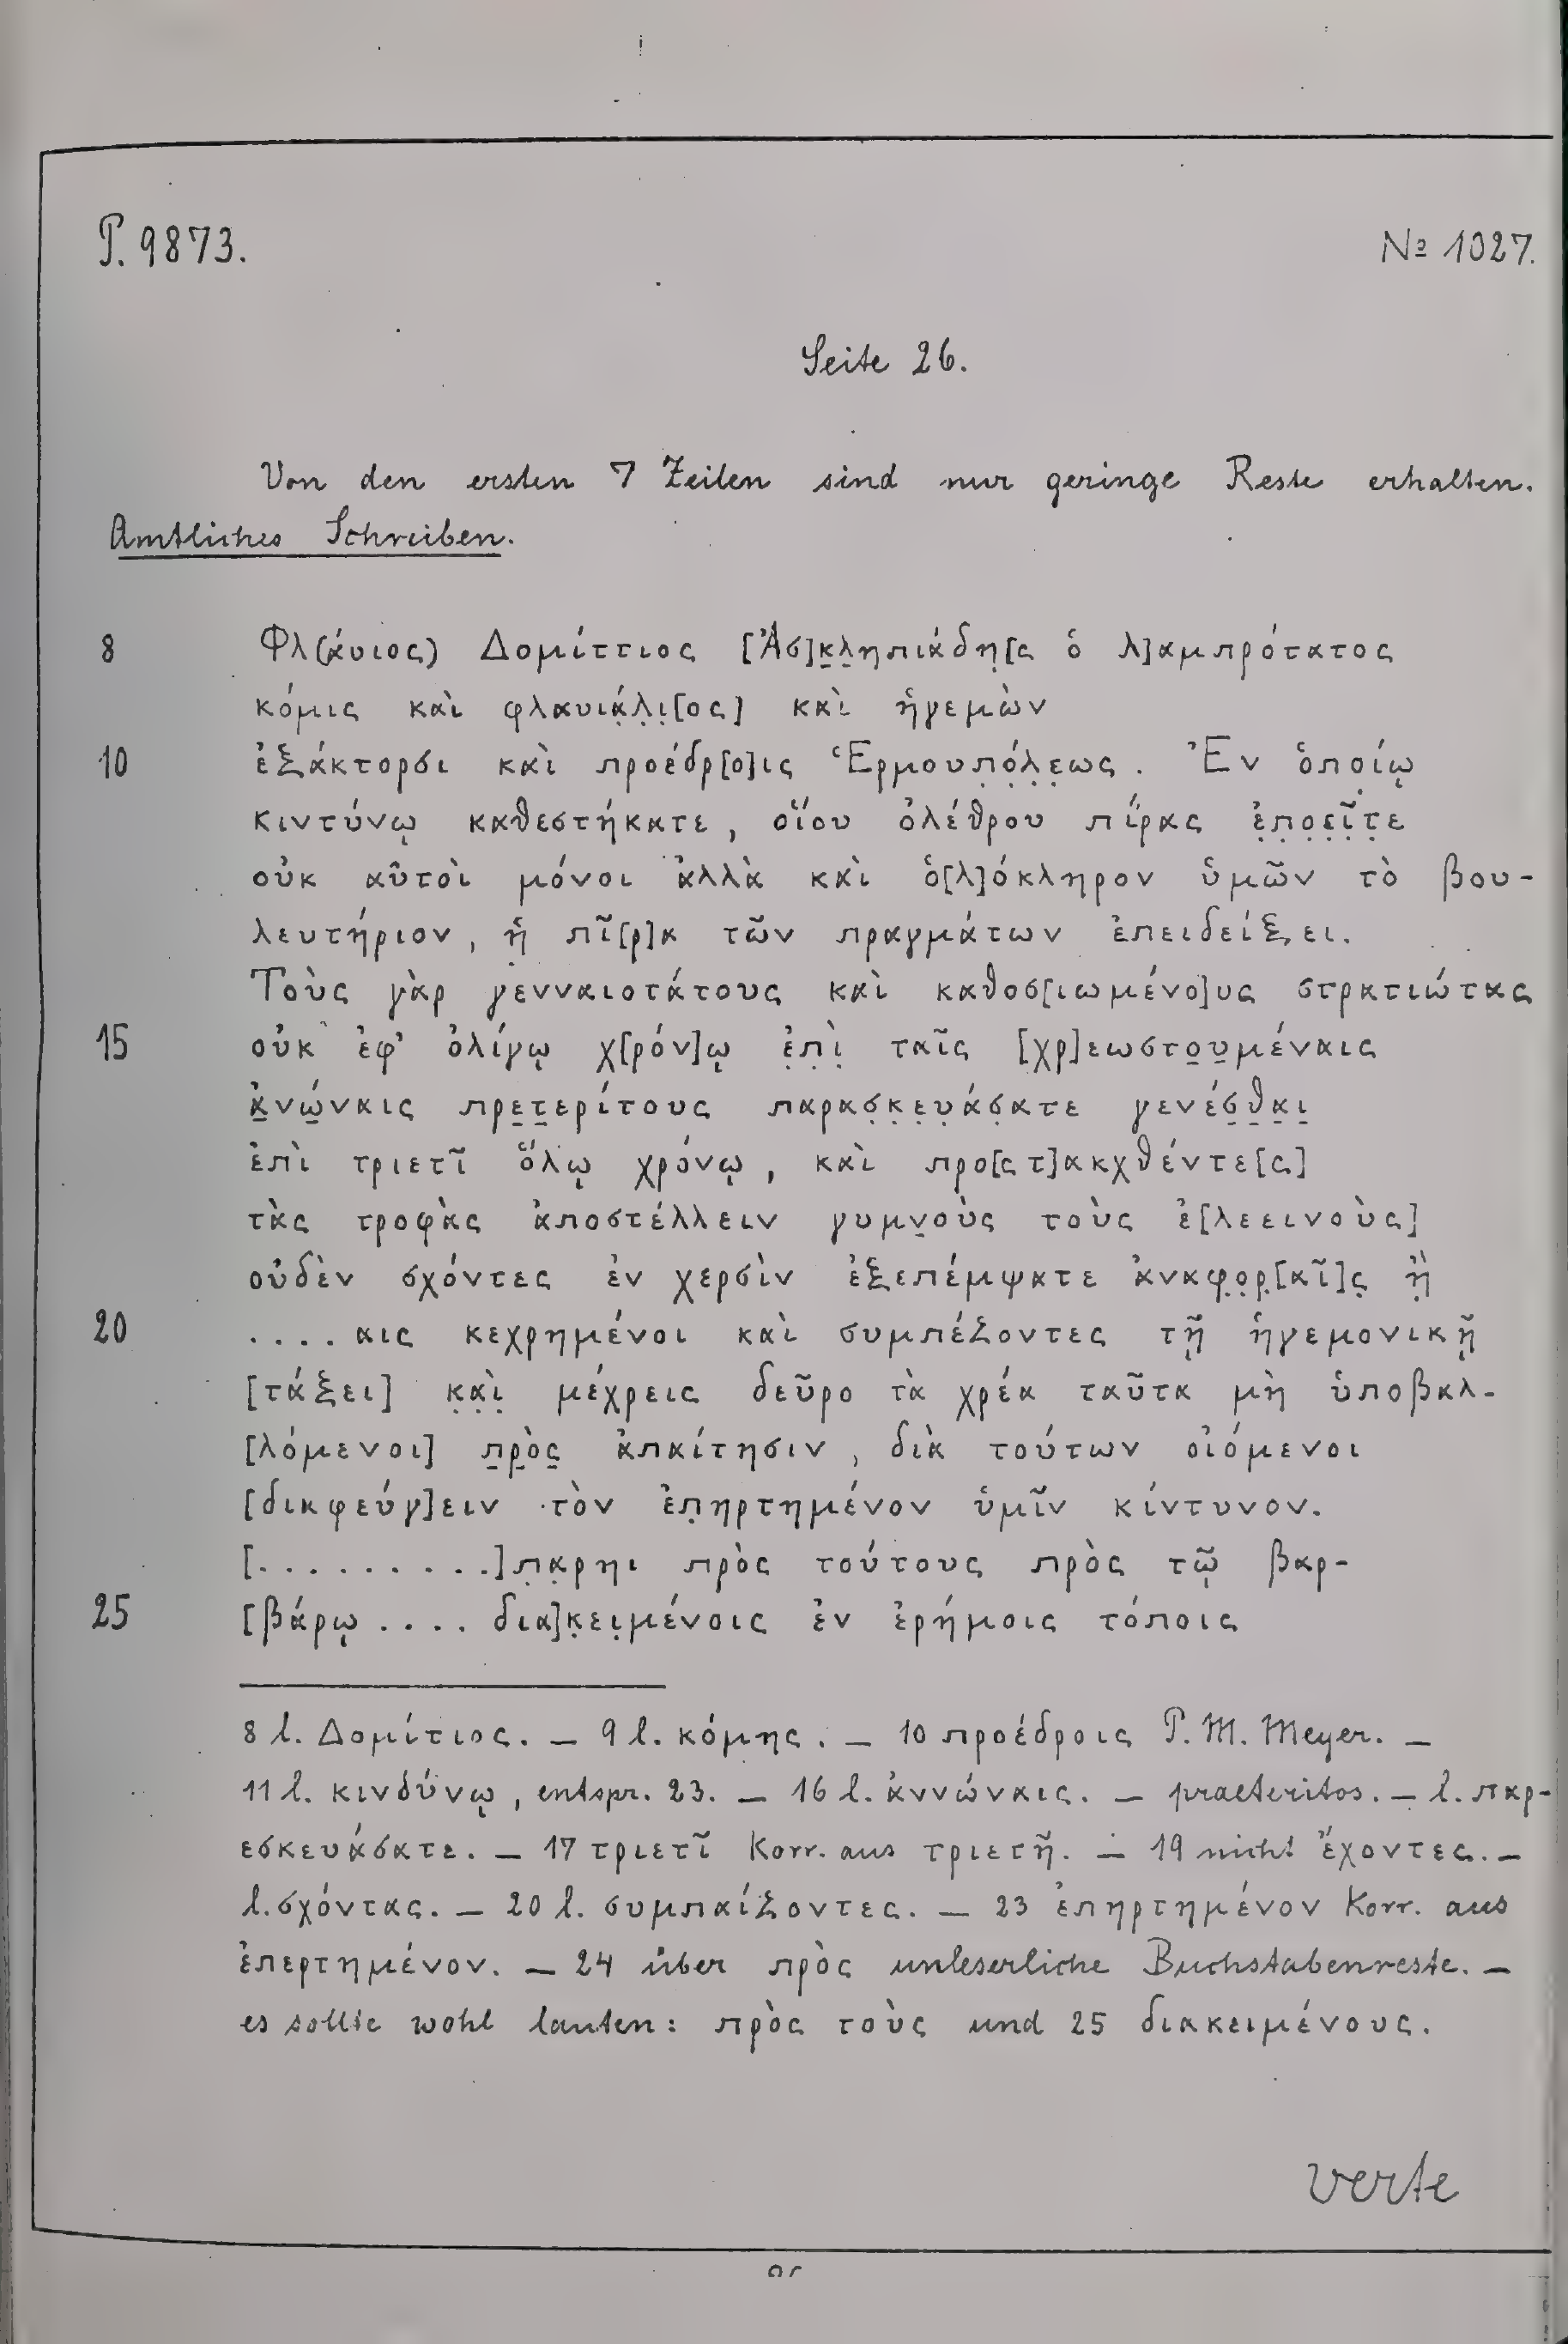 P. 9873.
№ 1027.
Seite 26.
Von den ersten 7 Zeilen sind nur geringe Reste erhalten.
Amtliches Schreiben.
8 Φλ(άυιος) Δομίττιος [Ἀσ]κ̣λ̣ηπιάδη̣[ς ὁ λ]αμπρότατος
κόμις καὶ φλαυιά̣λ̣ι̣[ος] καὶ ἡγεμὼν
10 ἐξάκτορσι καὶ προέδρ[ο]ις Ἑρμουπ̣ό̣λ̣ε̣ως. Ἐν ὁπο̣ίῳ
κιντύνῳ καθεστήκατε, οἵου ὀλέθρου πίρας ἐ̣π̣ο̣ε̣ῖ̣τ̣ε
οὐκ αὐτοὶ μόνοι ἀλλὰ καὶ ὁ[λ]όκληρον ὑμῶν τὸ βου-
λευτήριον, ἡ̣ πῖ[ρ]α τῶν πραγμάτων ἐπειδείξ̣ει.
Τοὺς γὰρ γενναιοτάτους καὶ καθοσ[ιωμένο]υς στρατιώτας
15 οὐκ ἐφ’ ὀλίγῳ χ[ρόν]ῳ ἐ̣π̣ὶ̣ ταῖς [χρ]εωστο̣υ̣μέναις
ἀ̣νώ̣ναις πρε̣τ̣ερίτους παρασ̣κ̣ε̣υ̣άσ̣ατε γενέσ̣θ̣α̣ι̣
ἐπὶ τριετῖ ὅλῳ χρόνῳ, καὶ προ[ςτ]ακχθέντε[ς]
τὰς τροφὰς ἀποστέλλειν γυμν̣οὺς τοὺς ἐ[λεεινοὺς]
οὐδὲν σχόντες ἐν χερσὶν ἐξεπέμψατε ἀναφ̣ο̣ρ̣[αῖ]ς̣ ἢ̣
20 ....αις κεχρημένοι καὶ συμπέζοντες τῇ ἡγεμονικῇ
[τάξει] κ̣α̣ὶ̣ μέχρεις δεῦρο τὰ χρέα ταῦτα μὴ ὑποβαλ-
[λόμενοι] π̣ρ̣ὸς̣ ἀπαίτησιν, διὰ τούτων οἰόμενοι
[διαφεύγ]ειν τὸν ἐπ̣ηρτημένον ὑμῖν κίντυνον.
[.........]π̣α̣ρηι πρὸς τούτους πρὸς τῷ βαρ-
25 [βάρῳ .... δια]κ̣ει̣μένοις ἐν ἐρήμοις τόποις
8 l. Δομίτιος. — 9 l. κόμης. — 10 προέδροις P. M. Meyer. —
11 l. κινδύνῳ, entspr. 23. — 16 l. ἀννώναις. — praeteritos. — l. παρ-
εσκευάσατε. — 17 τριετῖ Korr. aus τριετῆ. — 19 nicht ἔχοντες. —
l. σχόντας. — 20 l. συμπαίζοντες. — 23 ἐπηρτημένον Korr. aus
ἐπερτημένον. — 24 über πρὸς unleserliche Buchstabenreste. —
es sollte wohl lauten: πρὸς τοὺς und 25 διακειμένους.
verte